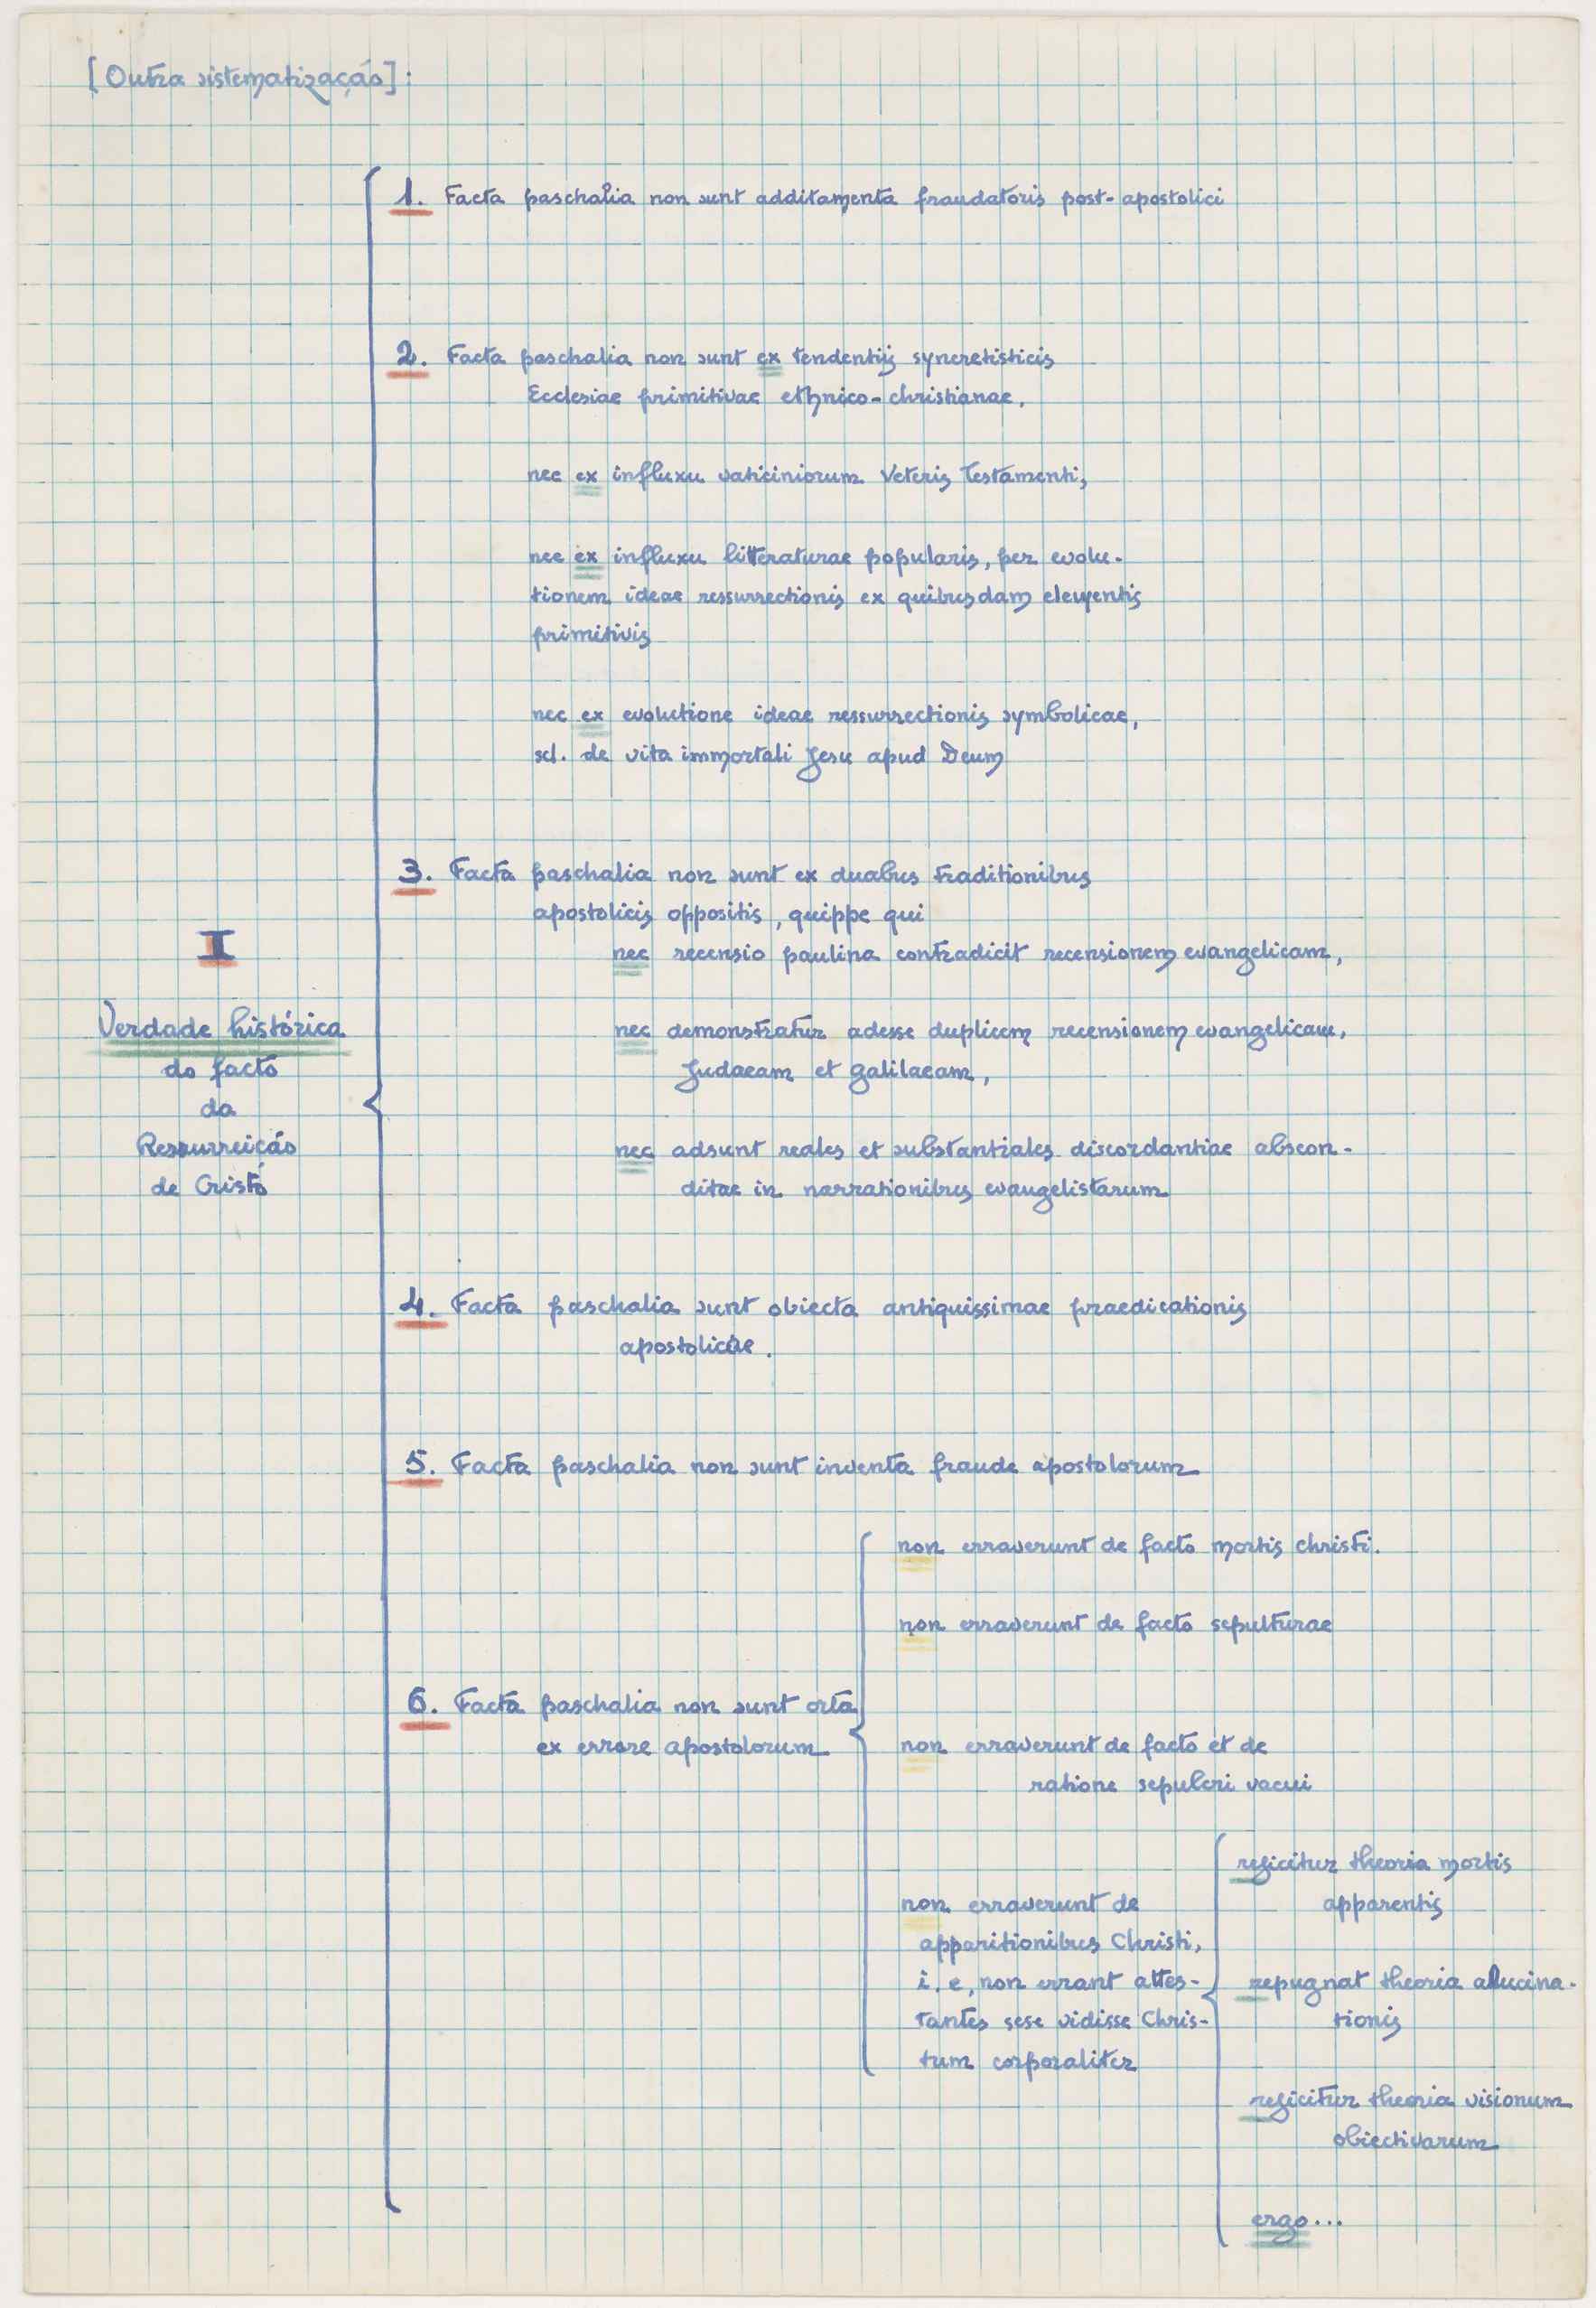 [Outra sistematização]:
1. Facta paschalia non sunt additamenta fraudatoris post-apostolici
2. Facta paschalia non sunt ex tendentiis syncretisticis
Ecclesiae primitivae ethnico-christianae,
nec ex influxu vaticiniorum Veteris Testamenti,
nec ex influxu litteraturae popularis, per evolu-
tionem ideae ressurrectionis ex quibusdam elementis
primitivis
nec ex evolutione ideae ressurrectionis symbolicae,
scl. de vita immortali Jesu apud Deum
3. Facta paschalia non sunt ex duabus traditionibus
apostolicis oppositis, quippe qui
nec recensio paulina contradicit recensionem evangelicam,
nec demonstratur adesse duplicem recensionem evangelicam,
Judaeam et Galilaeam,
nec adsunt reales et substantiales discordantiae abscon-
ditae in narrationibus evangelistarum
I
Verdade histórica
do facto
da
Ressurreição
de Cristo
4. Facta paschalia sunt obiecta antiquissimae praedicationis
apostolicae.
5. Facta paschalia non sunt inventa fraude apostolorum
6. Facta paschalia non sunt orta
ex errore apostolorum
non erraverunt de facto mortis Christi.
non erraverunt de facto sepulturae
non erraverunt de facto et de
ratione sepulcri vacui
non erraverunt de
apparitionibus Christi,
i.e, non errant attes-
tantes sese vidisse Chris-
tum corporaliter
rejicitur theoria mortis
apparentis
repugnat theoria allucina-
tionis
rejicitur theoria visionum
obiectivarum
ergo...